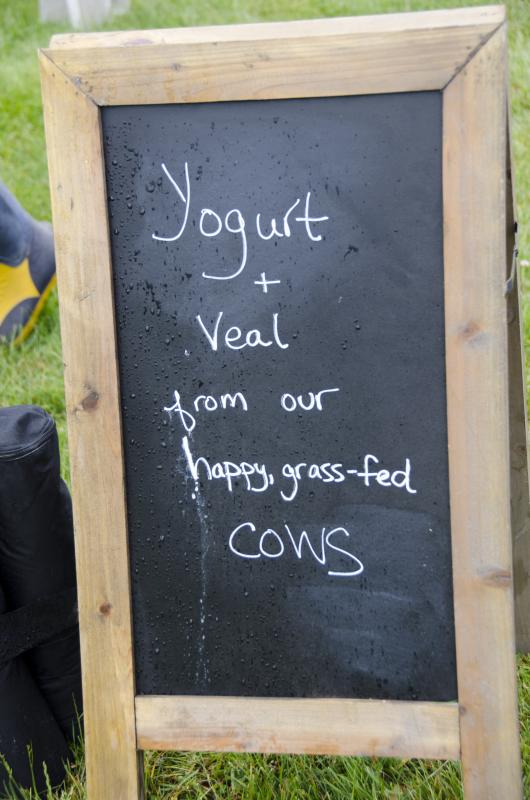 Yogurt
+
Veal
from our
happy, grass-fed
cows